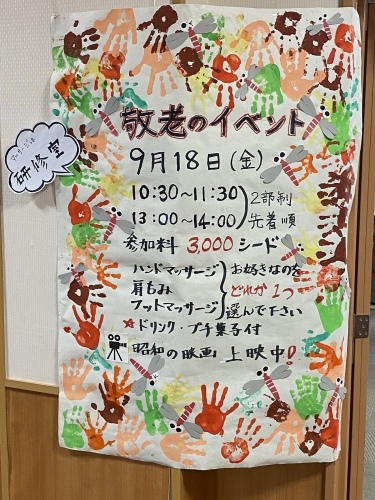 敬老のイベント
マッサージは
研修室
9月18日(金)
10:30~11:30
13:00~14:00
2部制
先着順
参加料 3,000シード
ハンドマッサージ
肩もみ
フットマッサージ
お好きなのを
どれか1つ
選んで下さい
☆ドリンク・プチ菓子付
昭和の映画 上映中